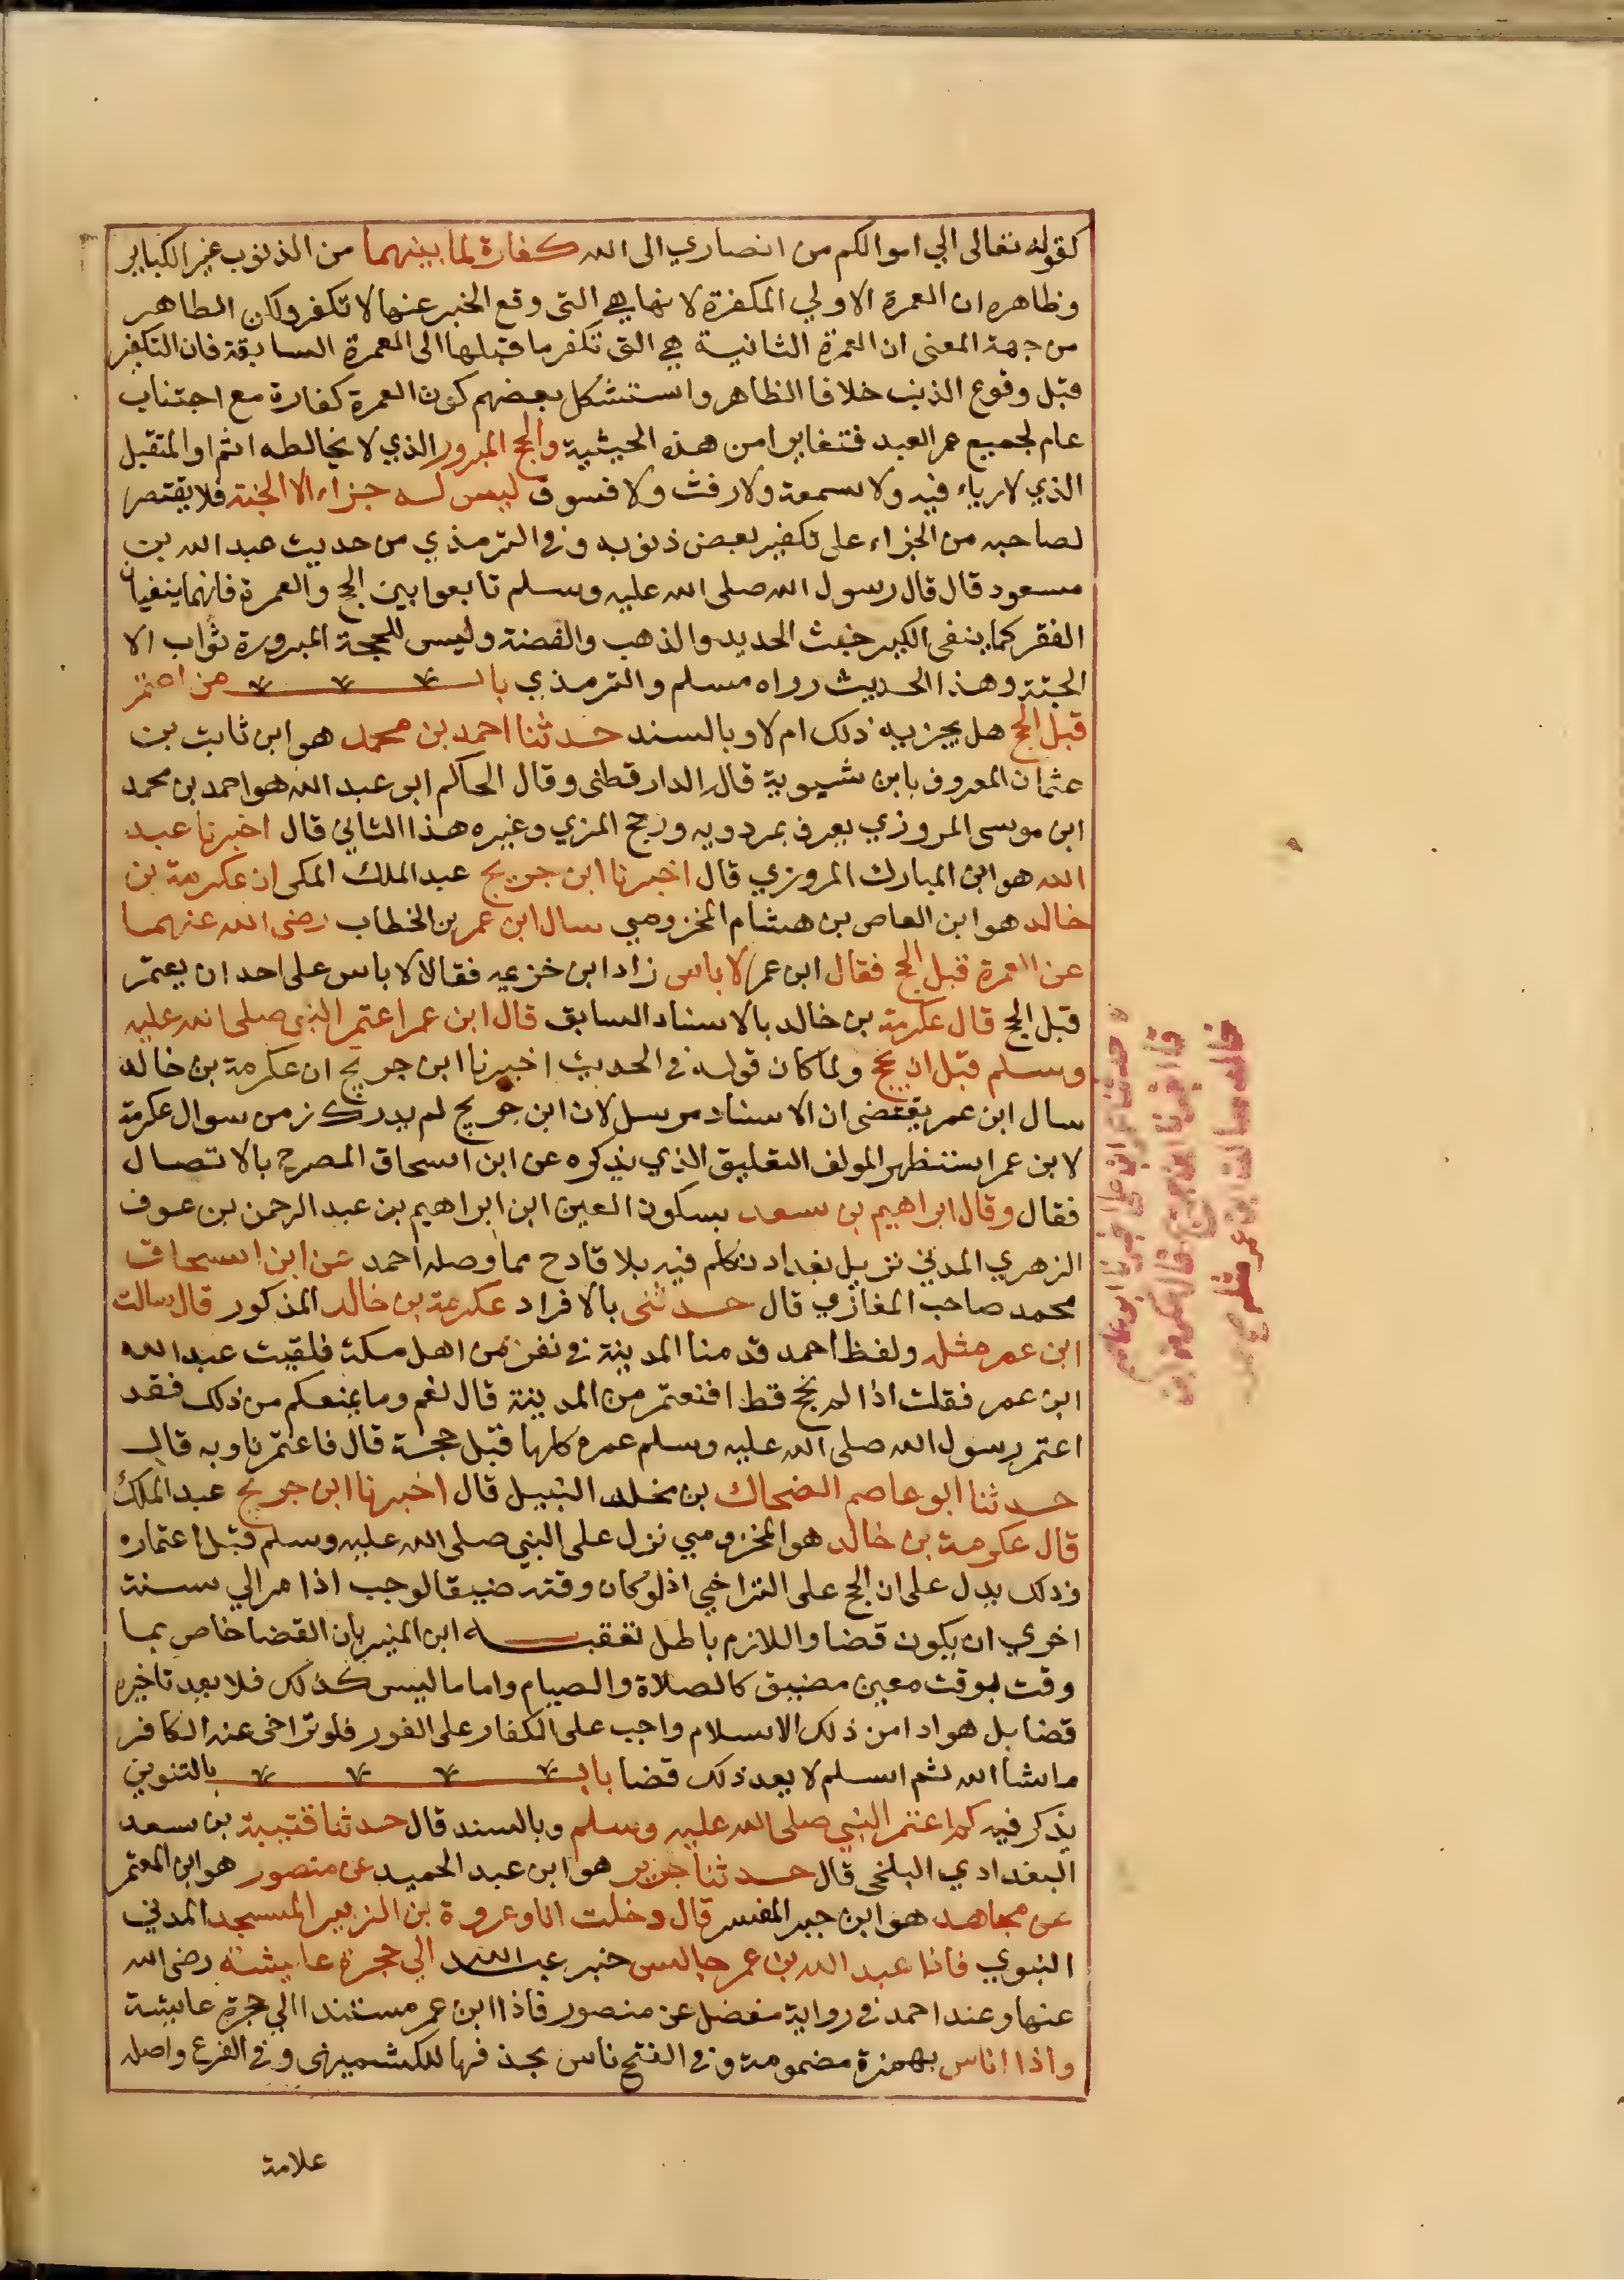 كقوله تعالى الي اموالكم من انصاري الى الله كفارة لما بينهما من الذنوب غير الكباير
وظاهره ان العمرة الاولي المكفرة لانها هي التي وقع الخبر عنها لا تكفر ولكن الظاهر
من جهة المعنى ان العمرة الثانية هي التي تكفر ما قبلها الى العمرة السابقة فان التكفير
قبل وقوع الذنب خلاف الظاهر واستشكل بعضهم كون العمرة كفارة مع اجتناب
عام لجميع عمر العبد فتغايرا من هذه الحيثية والحج المبرور الذي لا يخالطه اثم او المتقبل
الذي لا رياء فيه ولا سمعة ولا رفث ولا فسوق ليس له جزاء الا الجنة فلا يقتصر
لصاحبه من الجزاء على تكفير بعض ذنوبه وفي الترمذي من حديث عبد الله بن
مسعود قال قال رسول الله صلى الله عليه وسلم تابعوا بين الحج والعمرة فانهما ينفيان
الفقر كما ينفى الكير خبث الحديد والذهب والفضة وليس للحجة المبرورة ثواب الا
الجنة وهذا الحديث رواه مسلم والترمذي باب من اعتمر
قبل الحج هل يجزيه ذلك ام لا وبالسند حدثنا احمد بن محمد هو ابن ثابت بن
عثمان المعروف بابن شبوية قاله الدارقطنى وقال الحاكم ابو عبد الله هو احمد بن محمد
ابن موسى المروزي يعرف بمردويه ورجح المزي وغيره هذا الثاني قال اخبرنا عبد
الله هو ابن المبارك المروزي قال اخبرنا ابن جريج عبد الملك المكي ان عكرمة بن
خالد هو ابن العاص بن هشام المخزومي سال ابن عمر بن الخطاب رضى الله عنهما
عن العمرة قبل الحج فقال ابن عمر لا باس زاد ابن خزيمه فقال لا باس على احد ان يعتمر
قبل الحج قال عكرمة بن خالد بالاسناد السابق قال ابن عمر اعتمر النبي صلى الله عليه
وسلم قبل ان يحج ولما كان قوله في الحديث اخبرنا ابن جريج ان عكرمة بن خالد
سال ابن عمر يقتضى ان الاسناد مرسل لان ابن جريج لم يدرك زمن سوال عكرمة
لابن عمر استظهر المولف التعليق الذي يذكره عن ابن اسحاق المصرح بالاتصال
فقال وقال ابراهيم بن سعد بسكون العين ابن ابراهيم بن عبد الرحمن بن عوف
الزهري المدني نزيل بغداد تكلم فيه بلا قادح مما وصله احمد عن ابن اسحاق
محمد صاحب المغازي قال حدثنى بالافراد عكرمة بن خالد المذكور قال سالت
ابن عمر مثله ولفظ احمد قدمنا المدينة في نفر من اهل مكة فلقيت عبد الله
ابن عمر فقلت اذا لم نحج قط افنعتمر من المدينة قال نعم وما يمنعكم من ذلك فقد
اعتمر رسول الله صلى الله عليه وسلم عمره كلها قبل حجة قال فاعتمرنا وبه قال
حدثنا ابو عاصم الضحاك بن مخلد النبيل قال اخبرنا ابن جريج عبد الملك
قال عكرمة بن خالد هو المخزومي نزل على النبي صلى الله عليه وسلم قبل اعتماره
وذلك يدل على ان الحج على التراخي اذ لو كان وقته ضيقا لوجب اذا مر الي سنة
اخري ان يكون قضا واللازم باطل تعقبه ابن المنير بان القضا خاص بما
وقت بوقت معين مضيق كالصلاة والصيام واما ما ليس كذلك فلا يعد تاخيره
قضا بل هو ادا من ذلك الاسلام واجب على الكفار على الفور فلو تراخى عنه الكافر
ما شا الله ثم اسلم لا يعد ذلك قضا باب بالتنوين
يذكر فيه كم اعتمر النبي صلى الله عليه وسلم وبالسند قال حدثنا قتيبة بن سعد
البغدادي البلخى قال حدثنا جرير هو ابن عبد الحميد عن منصور هو ابن المعتمر
عن مجاهد هو ابن جبر المفسر قال دخلت انا وعروة بن الزبير المسجد المدني
النبوي فاذا عبد الله بن عمر جالس خبر عبد الله الي حجرة عايشة رضى الله
عنها وعند احمد في رواية مفضل عن منصور فاذا ابن عمر مستندا الي حجرة عايشة
واذا اناس بهمزة مضمومة وفي الفتح ناس بحذفها للكشميهنى وفي الفرع واصله
علامة
حدثنا عمرو ابن علي اخبرنا ابو عاصم
قال اخبرنا ابن جريج قال عكرمة بن
خالد سالت ابن عمر مثله صح